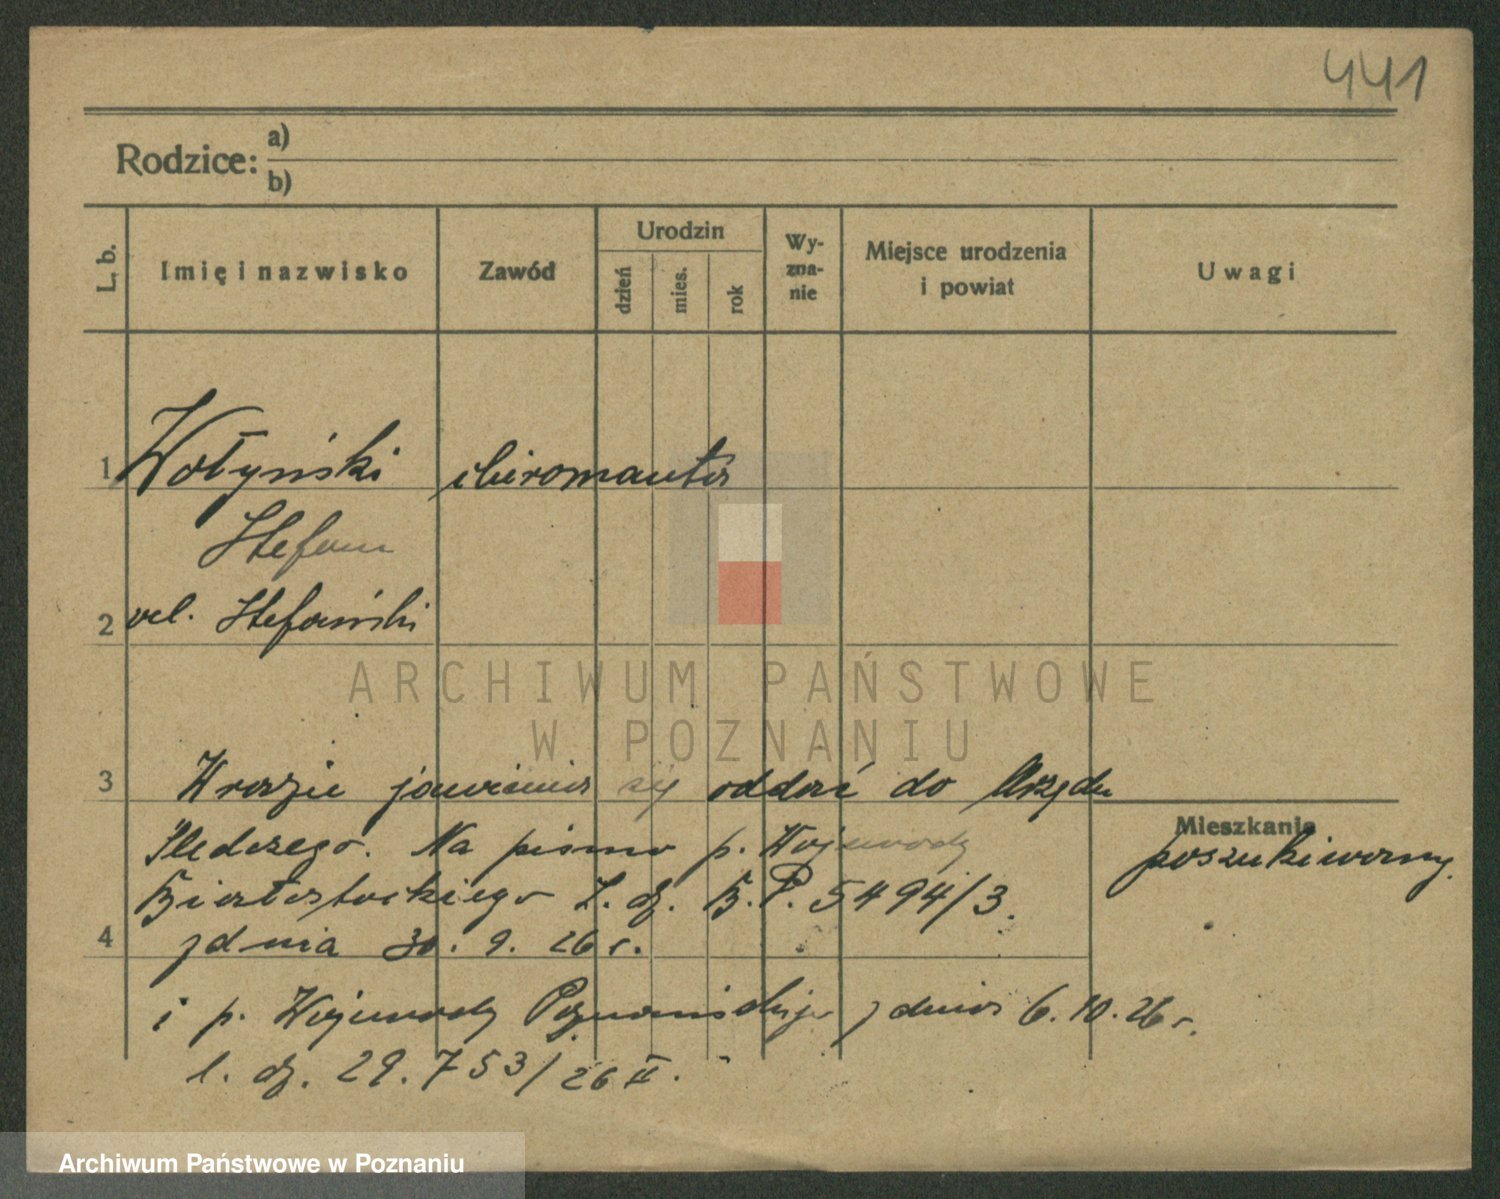 441
Rodzice: a)
b)
L. b. Imię i nazwisko Zawód Urodzin dzień mies. rok Wy-zna-nie Miejsce urodzenia i powiat Uwagi
1 Wołyński chiromanta
Stefan
2 vel. Stefański
ARCHIWUM PAŃSTWOWE
W POZNANIU
3 W razie jawienia się oddać do Urzędu
Mieszkanie
Śledczego. Na pismo p. Wojewody poszukiwany.
Białostockiego L. dz. B.P. 5494/3.
4 z dnia 30. 9. 26 r.
i p. Wojewody Poznańskiego z dnia 6. 10. 26 r.
l. dz. 29.753/26 II.
Archiwum Państwowe w Poznaniu